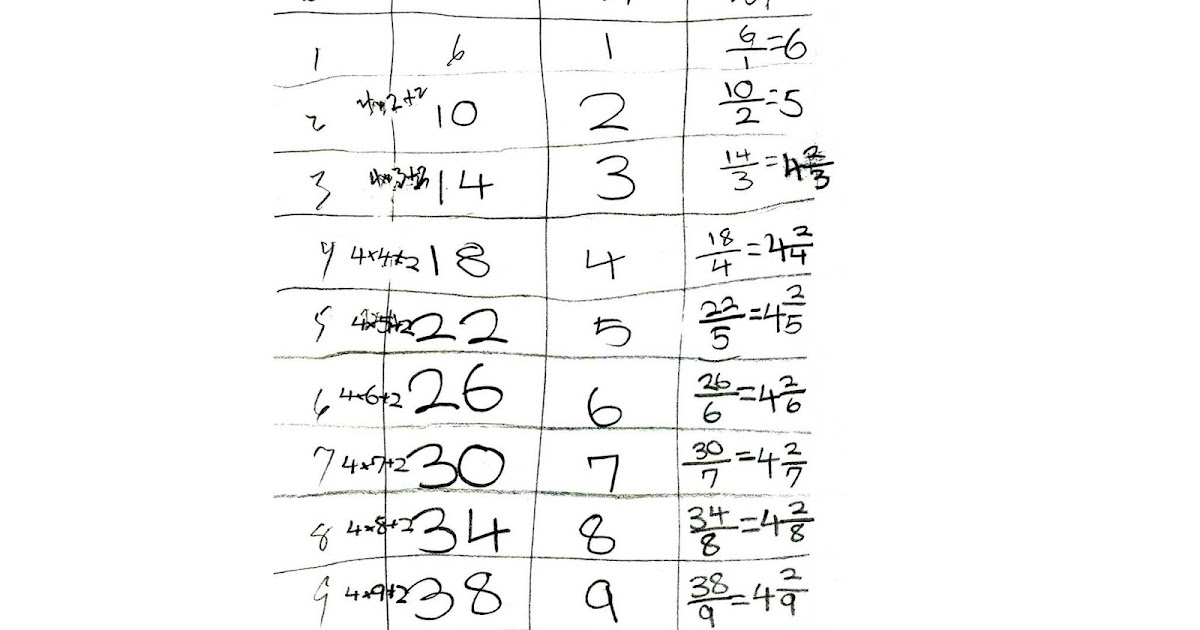 1 6 1 6/1=6
2 4×2+2 10 2 10/2=5
3 4×3+2 14 3 14/3=4 2/3
4 4×4+2 18 4 18/4=4 2/4
5 4×5+2 22 5 22/5=4 2/5
6 4×6+2 26 6 26/6=4 2/6
7 4×7+2 30 7 30/7=4 2/7
8 4×8+2 34 8 34/8=4 2/8
9 4×9+2 38 9 38/9=4 2/9